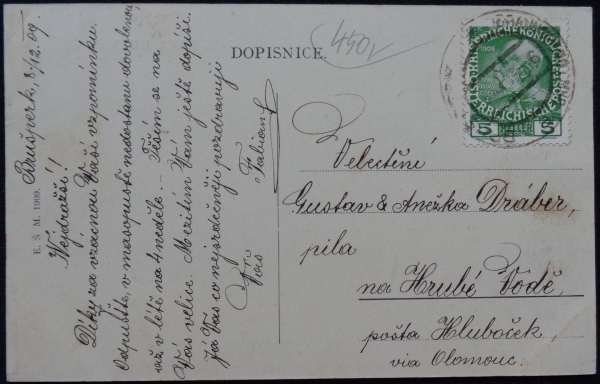 DOPISNICE.
450,-
Brušperk, 8/12. 09.
Nejdražší!
Díky za vzácnou Vaší vzpomínku.
Odpusťte, v masopustě nedostanu dovolenou,
až v létě na 4 neděle. — Těším se na
Vás velice. Mezitím Vám ještě dopíši.
Já Vás co nejsrdečněji pozdravuji
Vás
Fabian
E. Š. M. 1909.
Velectění
Gustav & Anežka Dráber,
pila
na Hrubé Vodě,
pošta Hluboček,
via Olomouc.
1908
5 HELLER 5